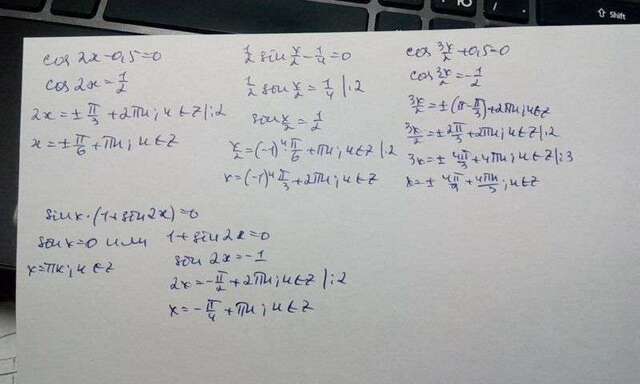 cos 2x-0,5=0
cos 2x=1/2
2x=±π/3+2πn; n∈Z |:2
x=±π/6+πn; n∈Z
1/2 sin x/2-1/4=0
1/2 sin x/2=1/4 |:2
sin x/2=1/2
x/2=(-1)ⁿ π/6+πn; n∈Z |·2
x=(-1)ⁿ π/3+2πn; n∈Z
cos 3x/2+0,5=0
cos 3x/2=-1/2
3x/2=±(π-π/3)+2πn; n∈Z
3x/2=±2π/3+2πn; n∈Z |·2
3x=±4π/3+4πn; n∈Z |:3
x=±4π/9+4πn/3; n∈Z
sin x·(1+sin 2x)=0
sin x=0 или 1+sin 2x=0
x=πn; n∈Z
sin 2x=-1
2x=-π/2+2πn; n∈Z |:2
x=-π/4+πn; n∈Z
Shift